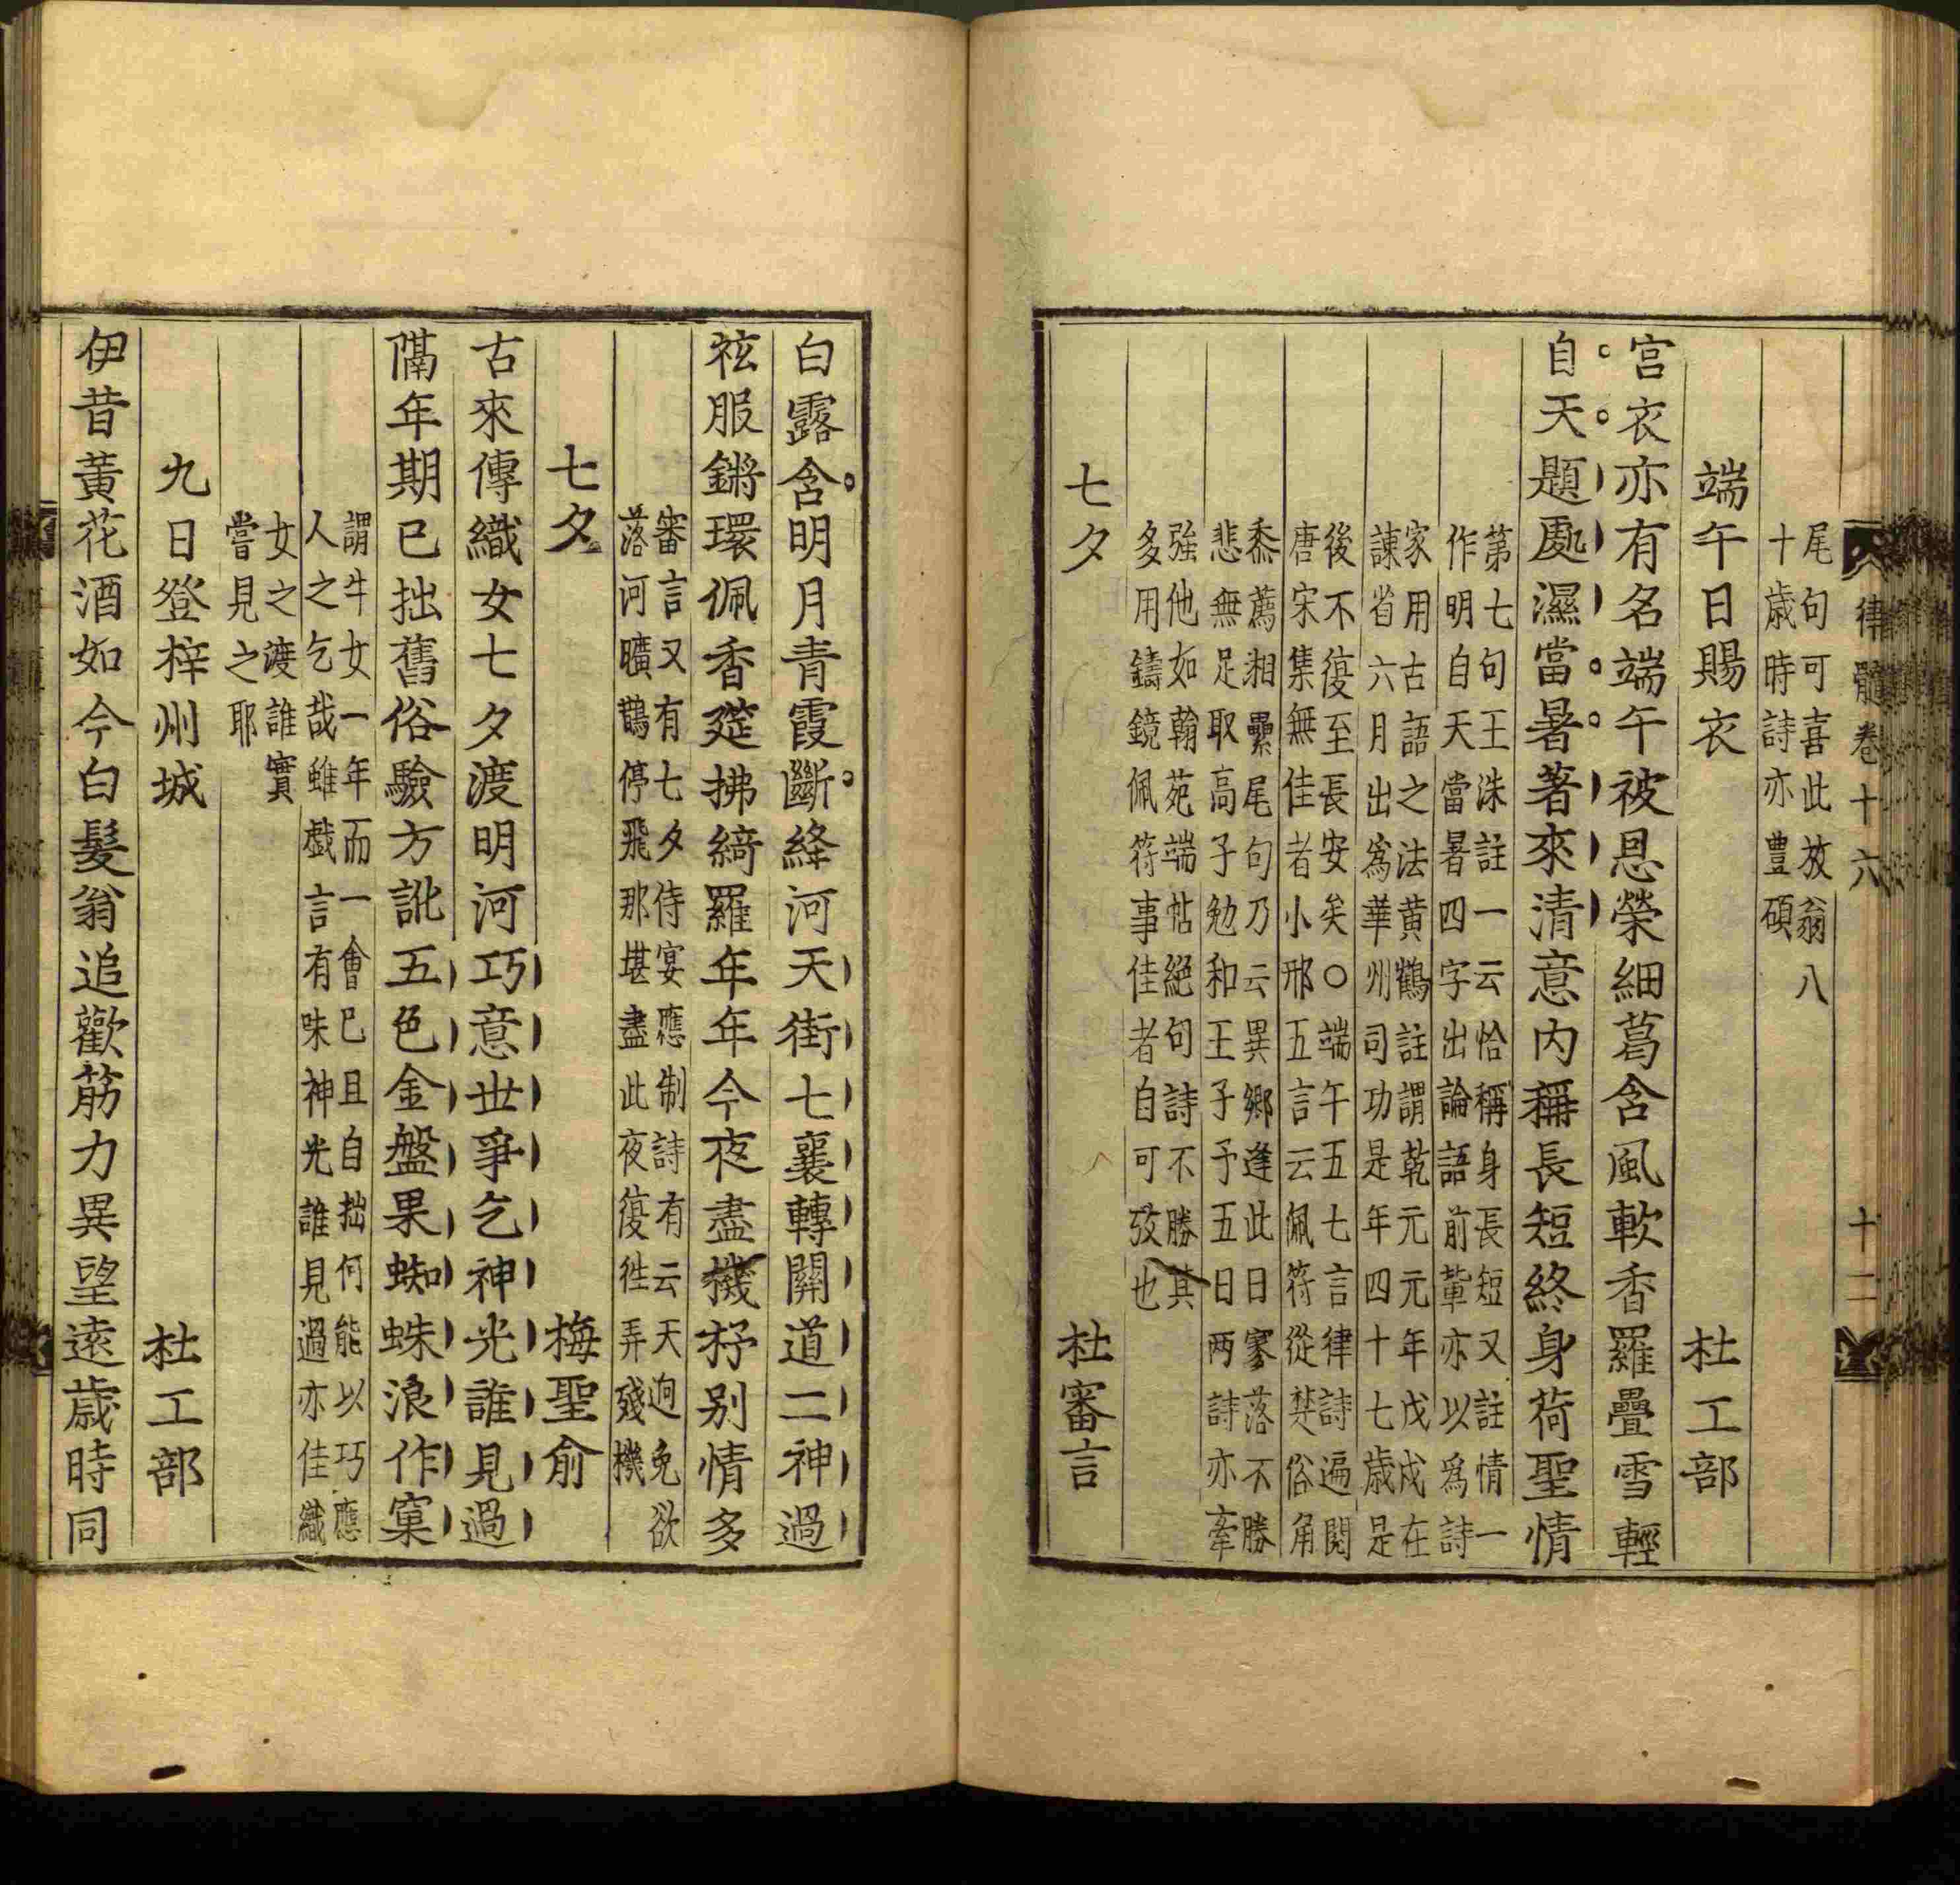 律髓卷十六
十二
尾句可喜此放翁八
十歲時詩亦豊碩
端午日賜衣 杜工部
宫衣亦有名端午被恩榮細葛含風軟香羅疊雪輕
自天題處濕當暑著來清意內稱長短終身荷聖情
第七句王洙註一云恰稱身長短又註情一
作明自天當暑四字出論語前軰亦以爲詩
家用古語之法黄鶴註謂乾元元年戊戌在
諫省六月出爲華州司功是年四十七歲是
後不復至長安矣○端午五七言律詩遍閱
唐宋集無佳者小邢五言云佩符從楚俗角
黍薦湘纍尾句乃云異鄉逢此日寥落不勝
悲無足取高子勉和王子予五日两詩亦牽
強他如翰苑端帖絕句詩不勝其
多用鑄鏡佩符事佳者自可攷也
七夕 杜審言
白露含明月青霞斷絳河天街七襄轉關道二神過
袨服鏘環佩香筵拂綺羅年年今夜盡機杼别情多
審言又有七夕侍宴應制詩有云天迥兔欲
落河曠鵲停飛那堪盡此夜復徃弄殘機
七夕 梅聖俞
古來傳織女七夕渡明河巧意世爭乞神光誰見過
隔年期已拙舊俗驗方訛五色金盤果蜘蛛浪作窠
謂牛女一年而一會已且自拙何能以巧應
人之乞哉雖戲言有味神光誰見過亦佳織
女之渡誰實
嘗見之耶
九日登梓州城 杜工部
伊昔黃花酒如今白髮翁追歡筋力異望遠歲時同